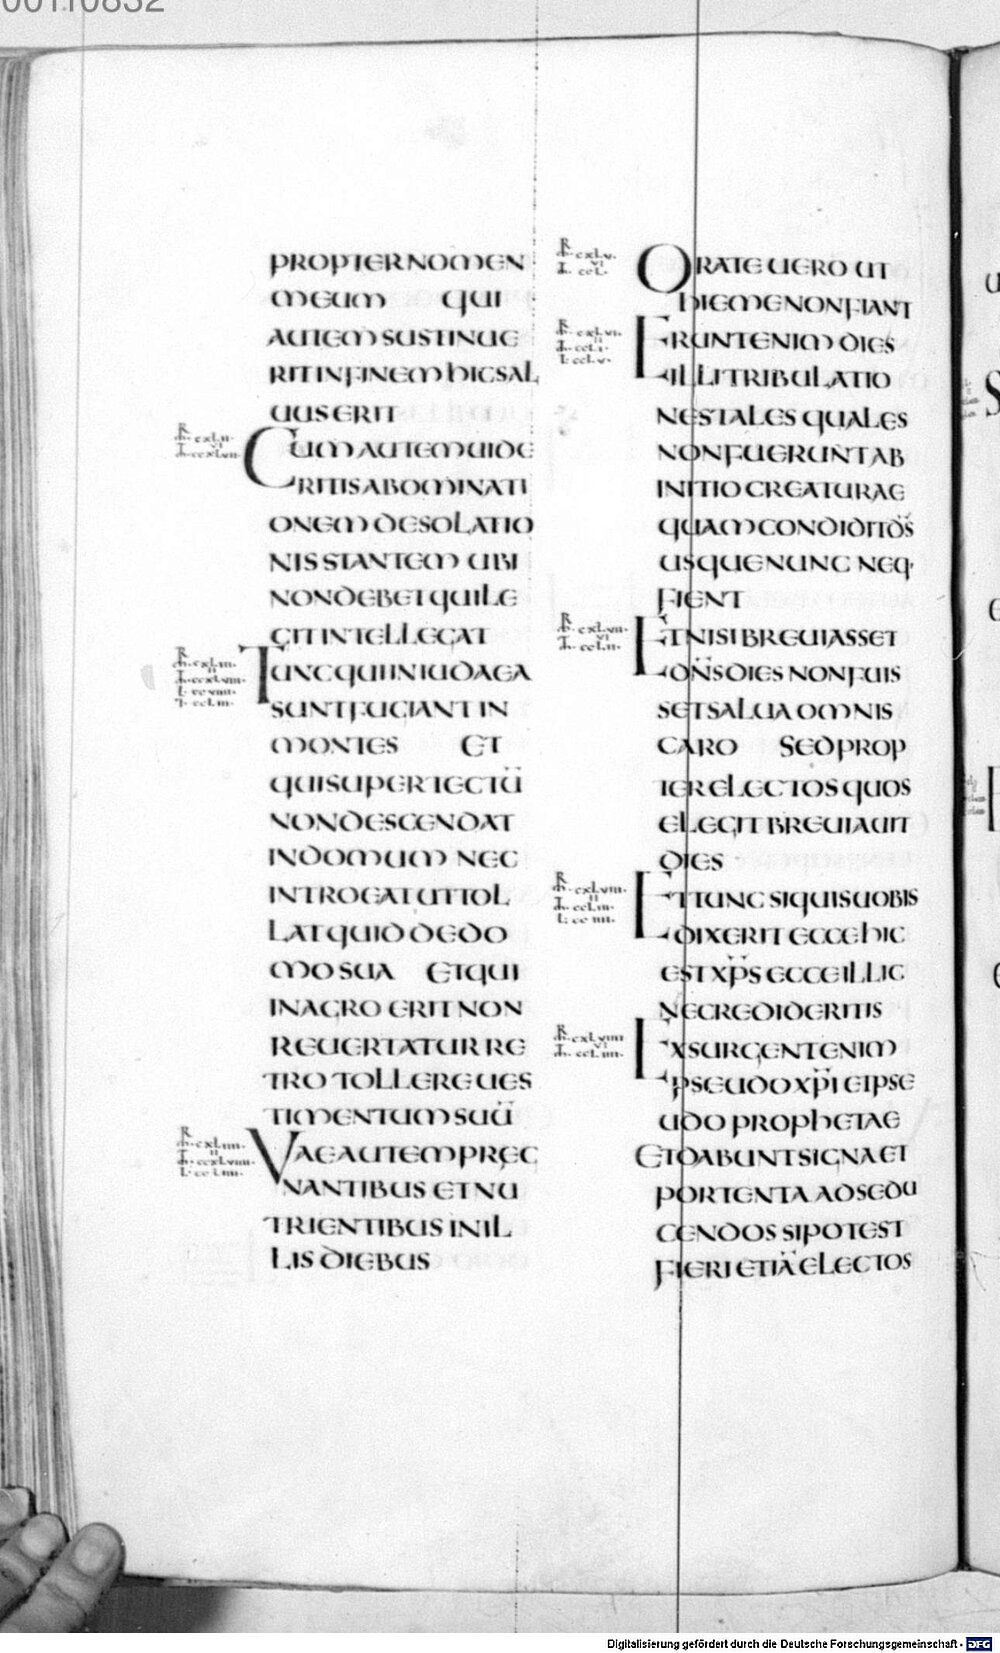 00110832
PROPTERNOMEN
MEUM QUI
AUTEMSUSTINUE
RITINFINEMHICSAL
UUSERIT
CUMAUTEMUIDE
RITISABOMINATI
ONEMDESOLATIO
NISSTANTEM UBI
NONDEBETQUILE
GITINTELLEGAT
TUNCQUIINIUDAEA
SUNTFUGIANTIN
MONTES ET
QUISUPERTECTŪ
NONDESCENDAT
INDOMUM NEC
INTROEATUTTOL
LATQUIDDEDO
MOSUA ETQUI
INAGROERITNON
REUERTATURRE
TROTOLLEREUES
TIMENTUMSUŪ
VAEAUTEMPREG
NANTIBUSETNU
TRIENTIBUSINIL
LISDIEBUS
ORATEUEROUT
HIEMENONFIANT
ERUNTENIMDIES
ILLITRIBULATIO
NESTALESQUALES
NONFUERUNTAB
INITIOCREATURAE
QUAMCONDIDITD̄S
USQUENUNCNEQ·
FIENT
ETNISIBREUIASSET
DN̄SDIESNONFUIS
SETSALUAOMNIS
CARO SEDPROP
TERELECTOSQUOS
ELEGITBREUIAUIT
DIES
ETTUNCSIQUISUOBIS
DIXERITECCEHIC
ESTXP̄SECCEILLIC
NECREDIDERITIS
EXSURGENTENIM
PSEUDOXP̄IETPSE
UDOPROPHETAE
ETDABUNTSIGNAET
PORTENTAADSEDU
CENDOSSIPOTEST
FIERIETIĀELECTOS
Digitalisierung gefördert durch die Deutsche Forschungsgemeinschaft - DFG